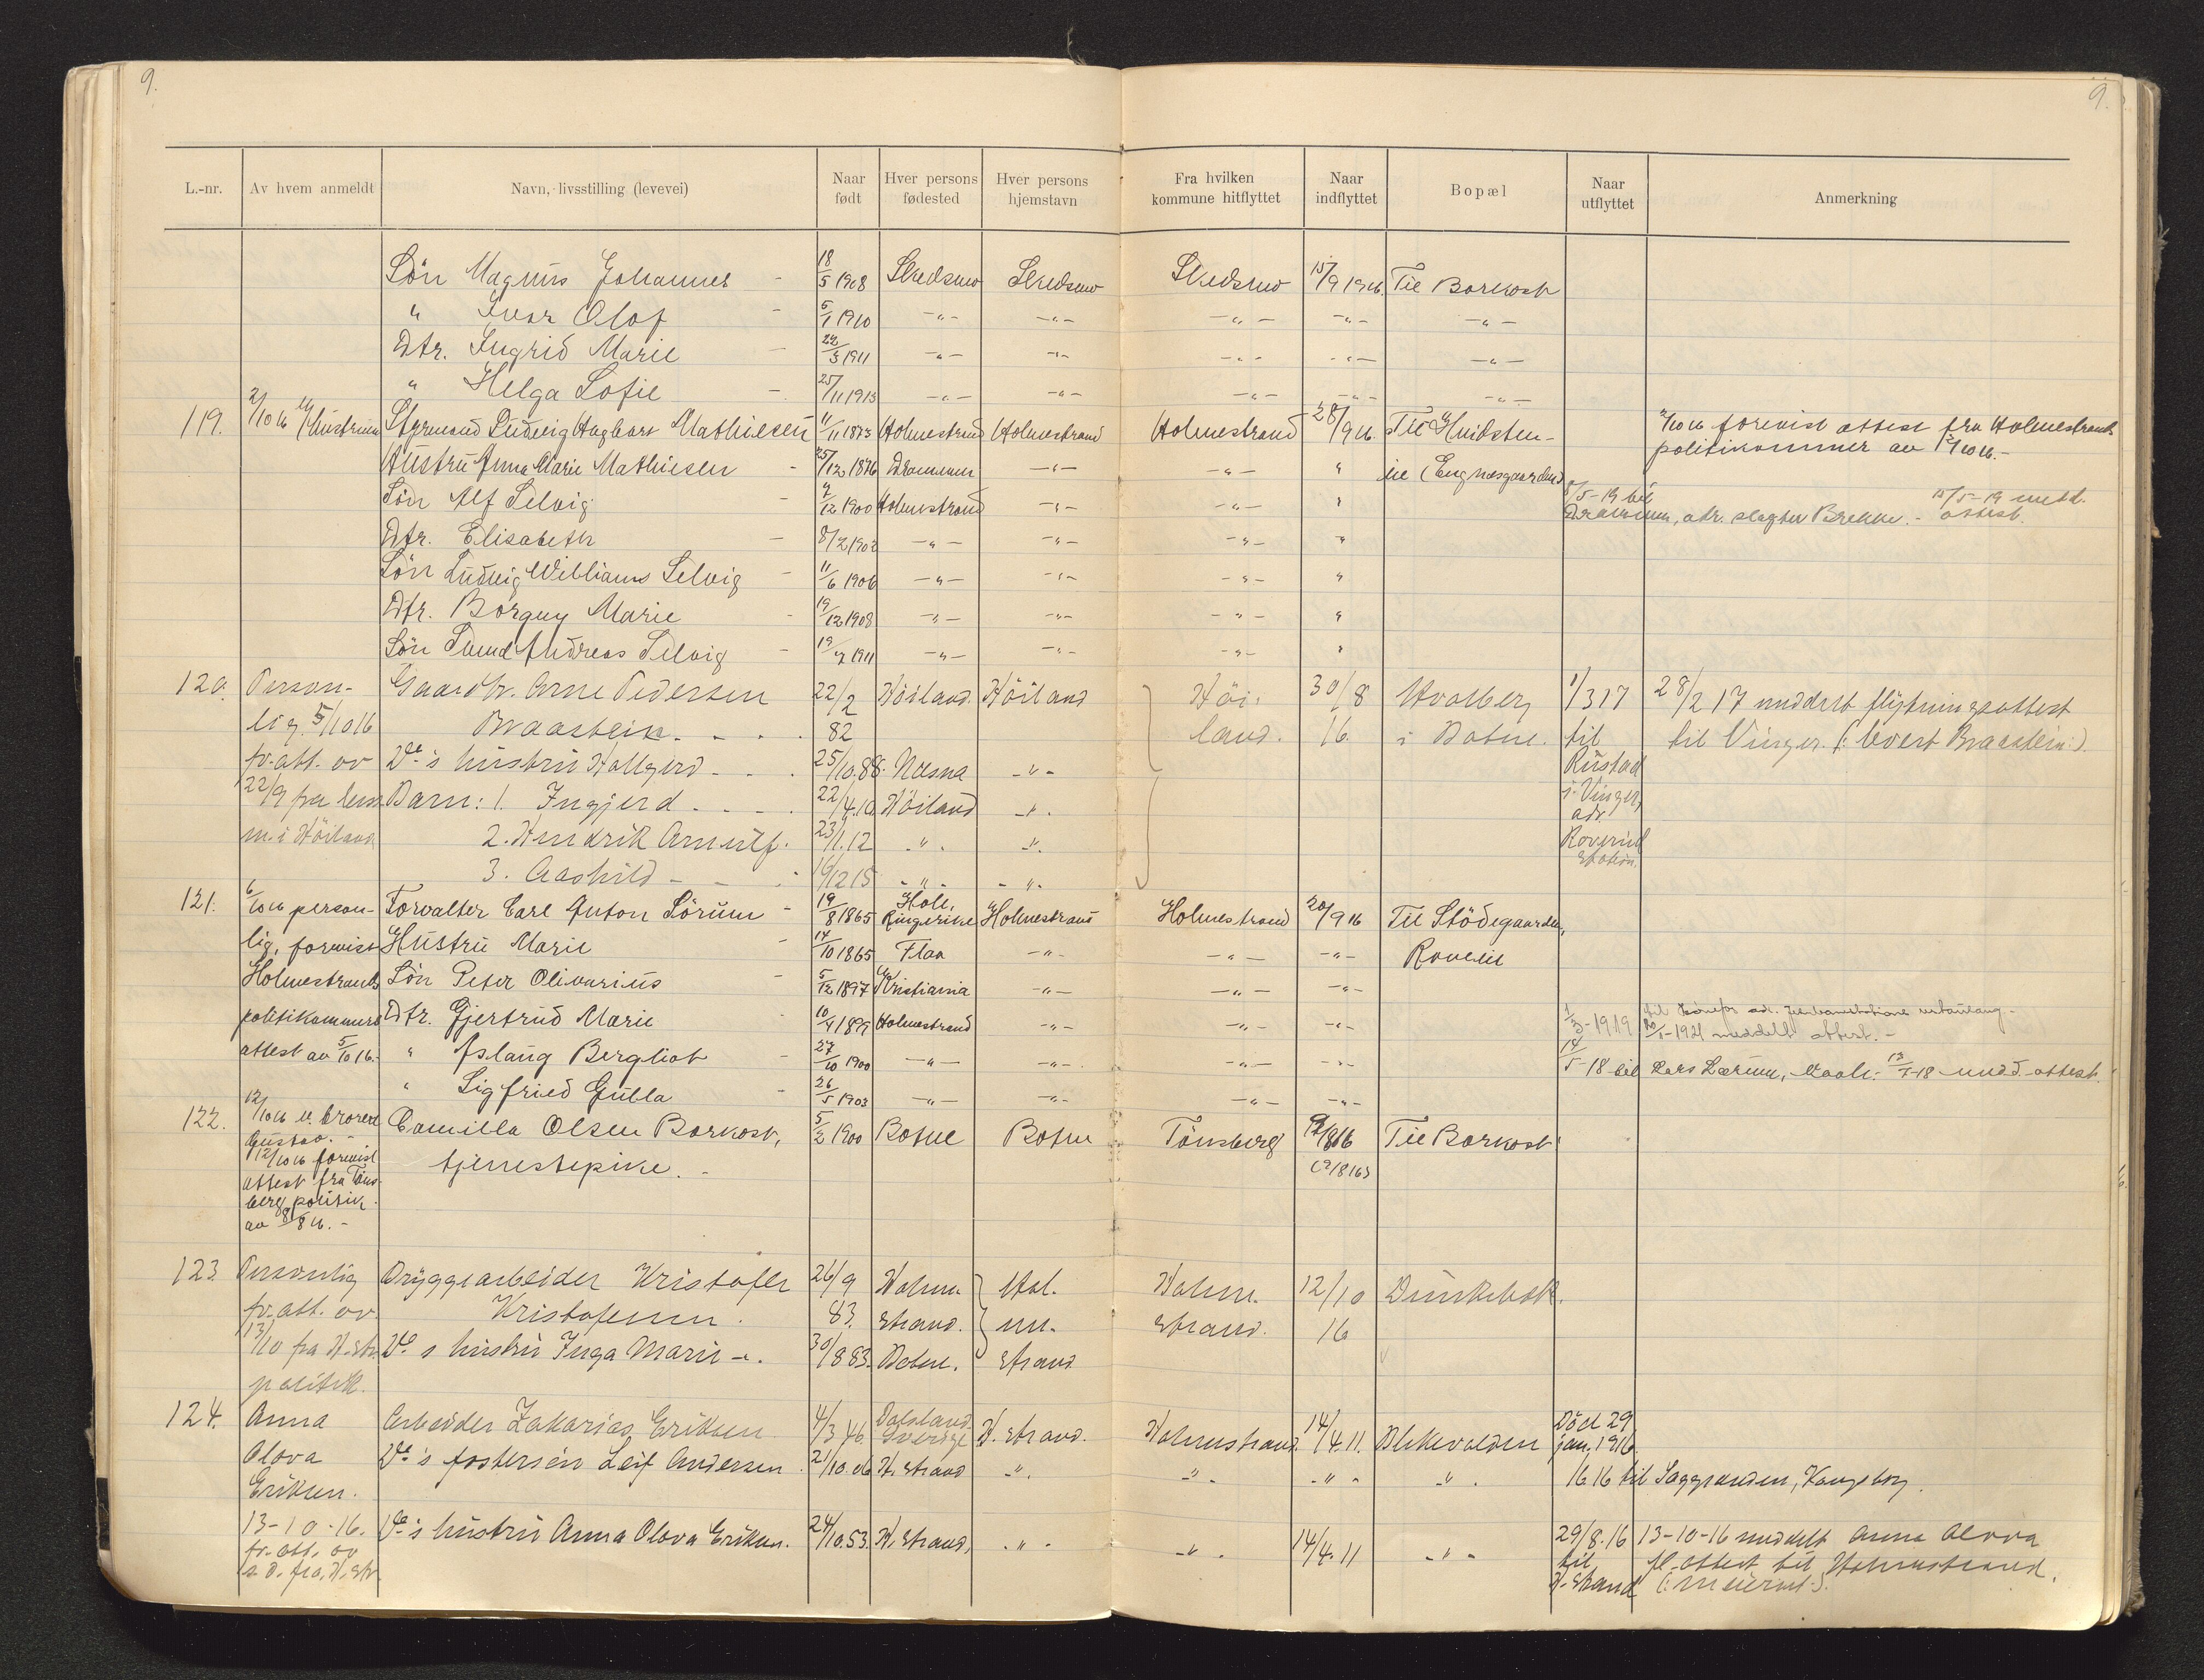 9.
9.
L.-nr. Av hvem anmeldt Navn, livsstilling (levevei) Naar født Hver persons fødested Hver persons hjemstavn Fra hvilken kommune hitflyttet Naar indflyttet Bopæl Naar utflyttet Anmerkning
Sön Magnus Johannes - 18/5 1908 Skedsmo Skedsmo Skedsmo 15/9 1916. Til Borkost
" Ivar Olof - 5/1 1910 -"- -"- -"- -"- -"-
Dtr. Ingrid Marie - 22/3 1911 -"- -"- -"- -"- -"-
" Helga Sofie - 25/11 1913 -"- -"- -"- -"- -"-
119. 2/10 16 v/ hustruen Styrmand Ludvig Hagbart Mathiesen 11/11 1873 Holmestrand Holmestrand Holmestrand 28/9 16. Til Hvidsten- 2/10 16 forevist attest fra Holmestrands
Hustru Anna Marie Mathiesen - 25/12 1876 Drammen -"- -"- " lie (Engnesgaarden) politikammer av 2/10 16.-
Sön Alf Selvig - 7/12 1900 Holmestrand -"- -"- " 8/5-19 til 15/5-19 medd.
Drammen, adr. slagter Brekke. - attest.
Dtr. Elisabeth - 8/2 1902 -"- -"- -"- "
Sön Ludvig Williams Selvig - 11/6 1906 -"- -"- -"- "
Dtr. Borgny Marie - 19/12 1908 -"- -"- -"- "
Sön Andreas Selvig - 19/7 1911 -"- -"- -"- "
120. Person- Gaardbr. Arne Pedersen 22/2 Höiland. Höiland Höi- 30/8 Hvalberg 1/3 17 28/2 17 meddelt flytningsattest
lig. 5/10 16 Braastein. - . . 82 land. 16. i Botne. til til Vinger. (: Evert Braastein:).
fr. att. av Do's hustru Hallgerd - . . 25/10.88. Nesna -"- Rustad
22/9 fra lens Barn: 1. Ingjerd . - . . 22/4.10 Höiland -"- i Vinger,
m. i Höiland 2. Hendrik Arnulf. 23/1.12 -"- -"- adr. Roverud
3. Aashild - - . 16/12 15 -"- -"- station.
121. 6/10 16 person- Forvalter Carl Anton Lörum - 19/8 1865 Hole, Ringerike Holmestrand Holmestrand 20/9 16 Til Stödegaarden,
lig, forevist Hustru Marie - 14/10 1865 Flaa -"- -"- -"- Rovelie
Holmestrands Sön Peter Olivarius - 5/12 1897 Kristiania -"- -"- -"-
politikammers Dtr. Gjertrud Marie - 10/4 1899 Holmestrand -"- -"- -"- 1/3-1919
20/1-1921 meddelt attest. -
attest av 5/10 16.- " Aslaug Bergliot - 27/10 1900 -"- -"- -"- -"- 14/5-18 til Lars Lærum, Vaale. 13/5-18 medd. attest.
" Sigfried Gulla - 26/5 1903 -"- -"- -"- -"-
122. 12/10 16 v. broren Camilla Olsen Borkost, 5/2 1900 Botne Botne Tönsberg 9/8 16 Til Borkost
Gustav. - tjenestepike. - (9/8 16)
12/10 16 forevist
attest fra Töns-
berg politik.
av 8/8 16. -
123. Personlig Bryggearbeider Kristofer 26/9 Holme- Hol- Holme- 12/10 Dunkebæk.
fr. att. av Kristofersen. 83. strand. me- strand. 16
13/10 fra H.str. Do s hustru Inga Marie -. 30/8 83. Botne. strand
politik.
124. Anna Arbeider Zakarias Eriksen 4/3 46. Dalsland Sverige H. strand. Holmestrand 14/4.11. Blekevolden Död 29 jan. 1916.
Olova Do's fostersön Leif Andersen . 21/10.06 H. strand -"- -"- -"- -"- 16 16 til Saggranden, Kongsberg.
Eriksen.
13-10-16. Do's hustru Anna Olova Eriksen. 24/10.53. H. strand. -"- -"- 14/4.11 -"- 29/8.16 13-10-16 meddelt Anna Olova
fr. att. av til fl. attest til Holmestrand.
s. d. fra H.str. H. strand (: Meieriet:).